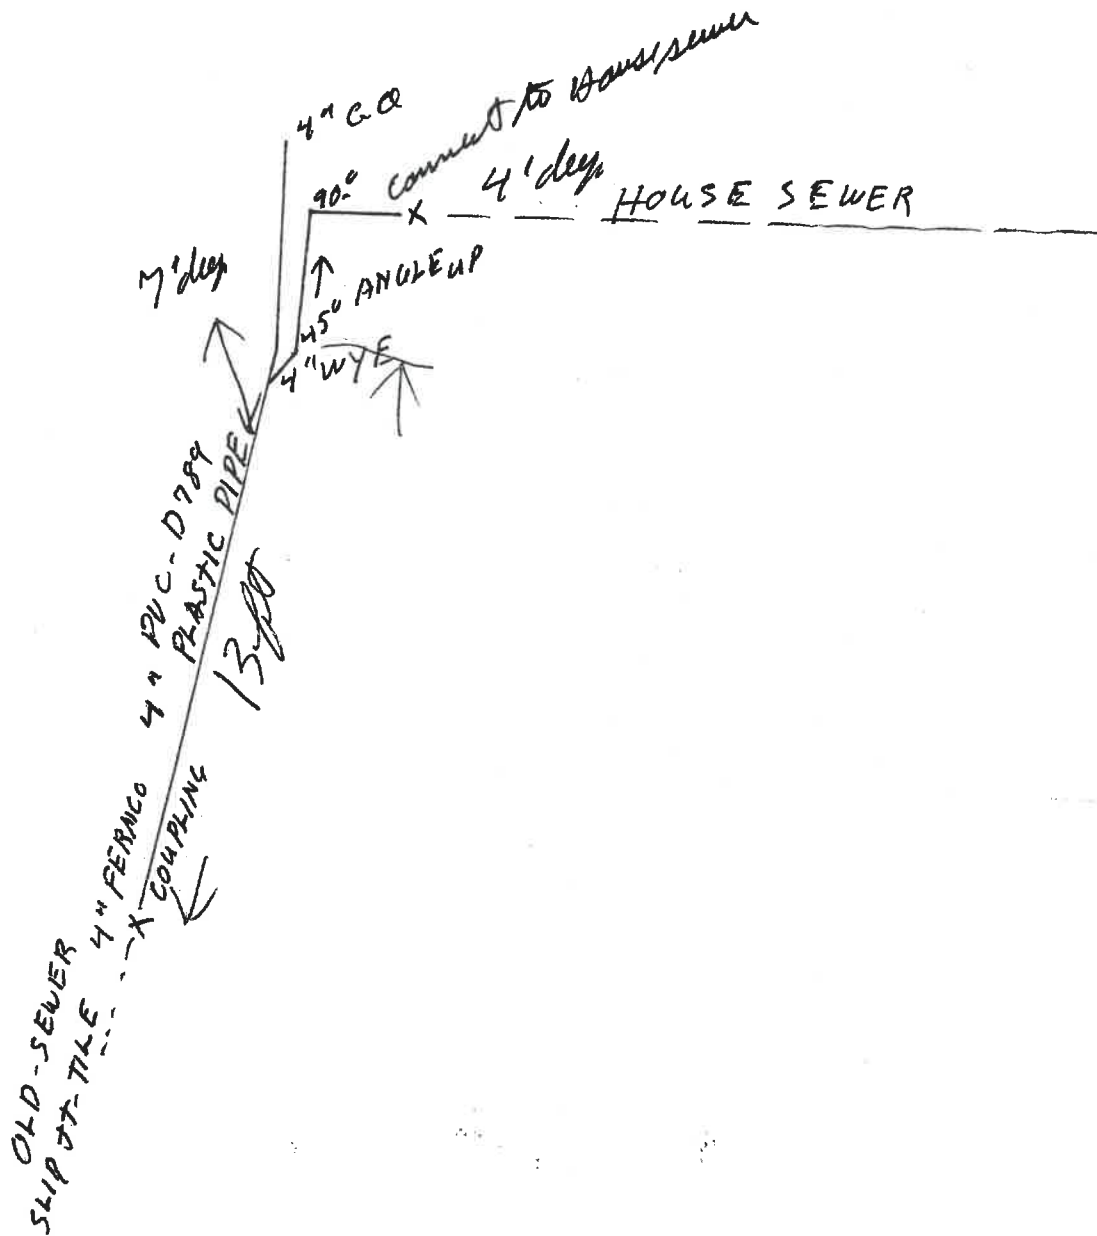 4" C.O
connect to House sewer
90°
4' deep
HOUSE SEWER
7' deep
45° ANGLE UP
4" WYE
4" PVC-D789
PLASTIC PIPE
13 ft
4" FERNCO
COUPLING
OLD-SEWER
SLIP JT-TILE